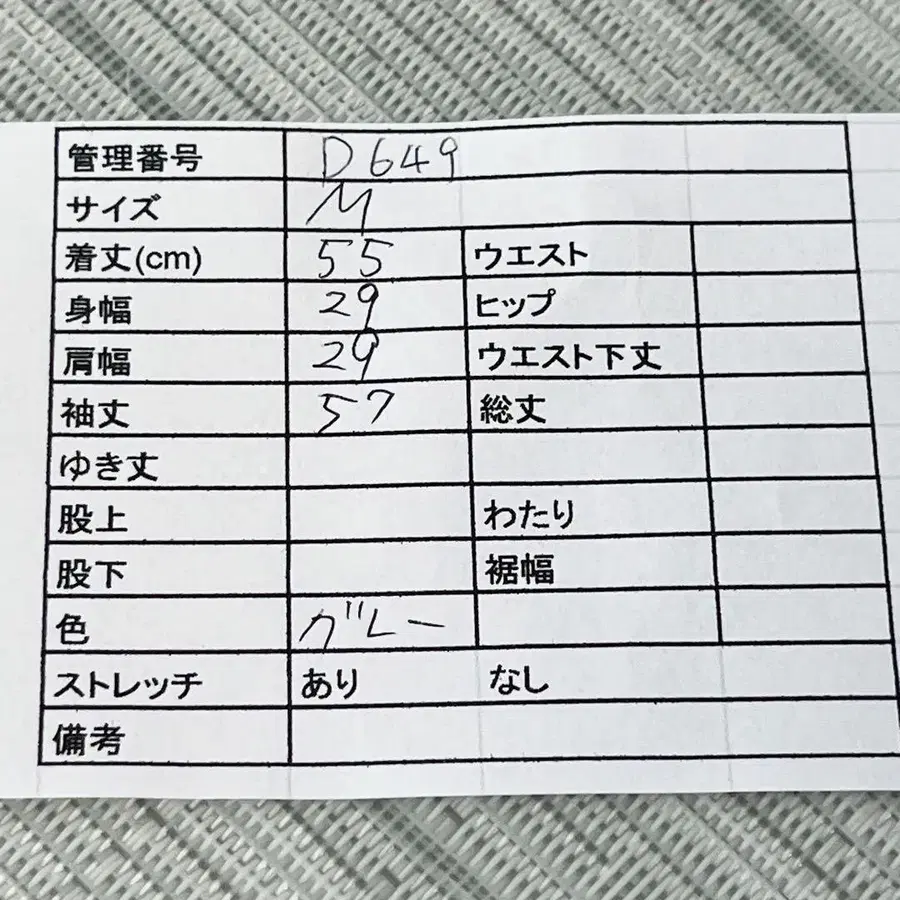 管理番号 D649
サイズ M
着丈(cm) 55 ウエスト
身幅 29 ヒップ
肩幅 29 ウエスト下丈
袖丈 57 総丈
ゆき丈
股上 わたり
股下 裾幅
色 グレー
ストレッチ あり なし
備考